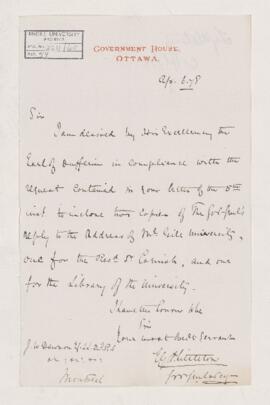 McGILL UNIVERSITY
ARCHIVES
GOVERNMENT HOUSE,
OTTAWA.
Apr. 6. 78
Sir
I am desired by His Excellency the
Earl of Dufferin in compliance with the
request contained in your letter of the 5th
inst to inclose two Copies of The Gov: Genl's
reply to the Address of McGill University,
one for the Revd Dr Cornish, and one
for the Library of the University.
I have the honour to be
Sir
Your most Obedt Servant
J. W. Dawson
Montreal